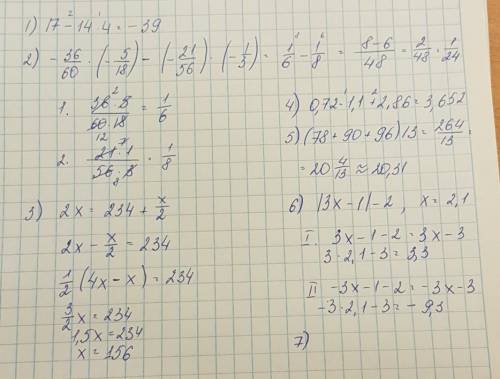 1) 17 - 14 · 4 = -39
2) - 36/60 · (- 5/18) - (- 21/56) · (- 1/3) = 1/6 - 1/8 = 8-6/48 = 2/48 = 1/24
1. 36 · 5 / 60 · 18 = 1/6
2. 21 · 1 / 56 · 3 · 1/8
3) 2x = 234 + x/2
2x - x/2 = 234
1/2 (4x - x) = 234
3/2 x = 234
1,5x = 234
x = 156
4) 0,72 · 1,1 + 2,86 = 3,652
5) (78 + 90 + 96) 13 = 264/13 =
= 20 4/13 ≈ 20,31
6) |3x - 1| - 2 , x = 2,1
I. 3x - 1 - 2 = 3x - 3
3 · 2,1 - 3 = 3,3
II -3x - 1 - 2 = -3x - 3
-3 · 2,1 - 3 = - 9,3
7)